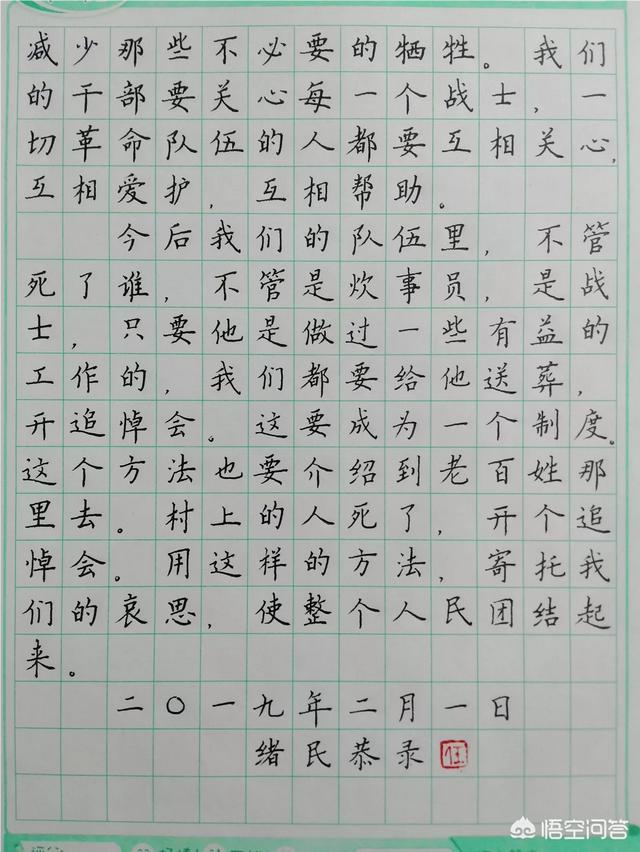 减少那些不必要的牺牲。我们
的干部要关心每一个战士，一
切革命队伍的人都要互相关心，
互相爱护，互相帮助。
今后我们的队伍里，不管
死了谁，不管是炊事员，是战
士，只要他是做过一些有益的
工作的，我们都要给他送葬，
开追悼会。这要成为一个制度。
这个方法也要介绍到老百姓那
里去。村上的人死了，开个追
悼会。用这样的方法，寄托我
们的哀思，使整个人民团结起
来。
二〇一九年二月一日
绪民恭录
悟空问答